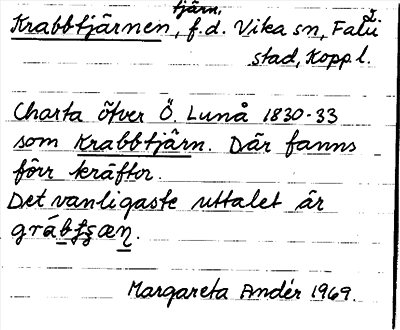 tjärn,
Krabbtjärnen, f.d. Vika sn, Falu
stad, Koppl.
Charta öfver Ö. Lunå 1830-33
som Krabbtjärn. Där fanns
förr kräftor.
Det vanligaste uttalet är
Margareta Andér 1969.